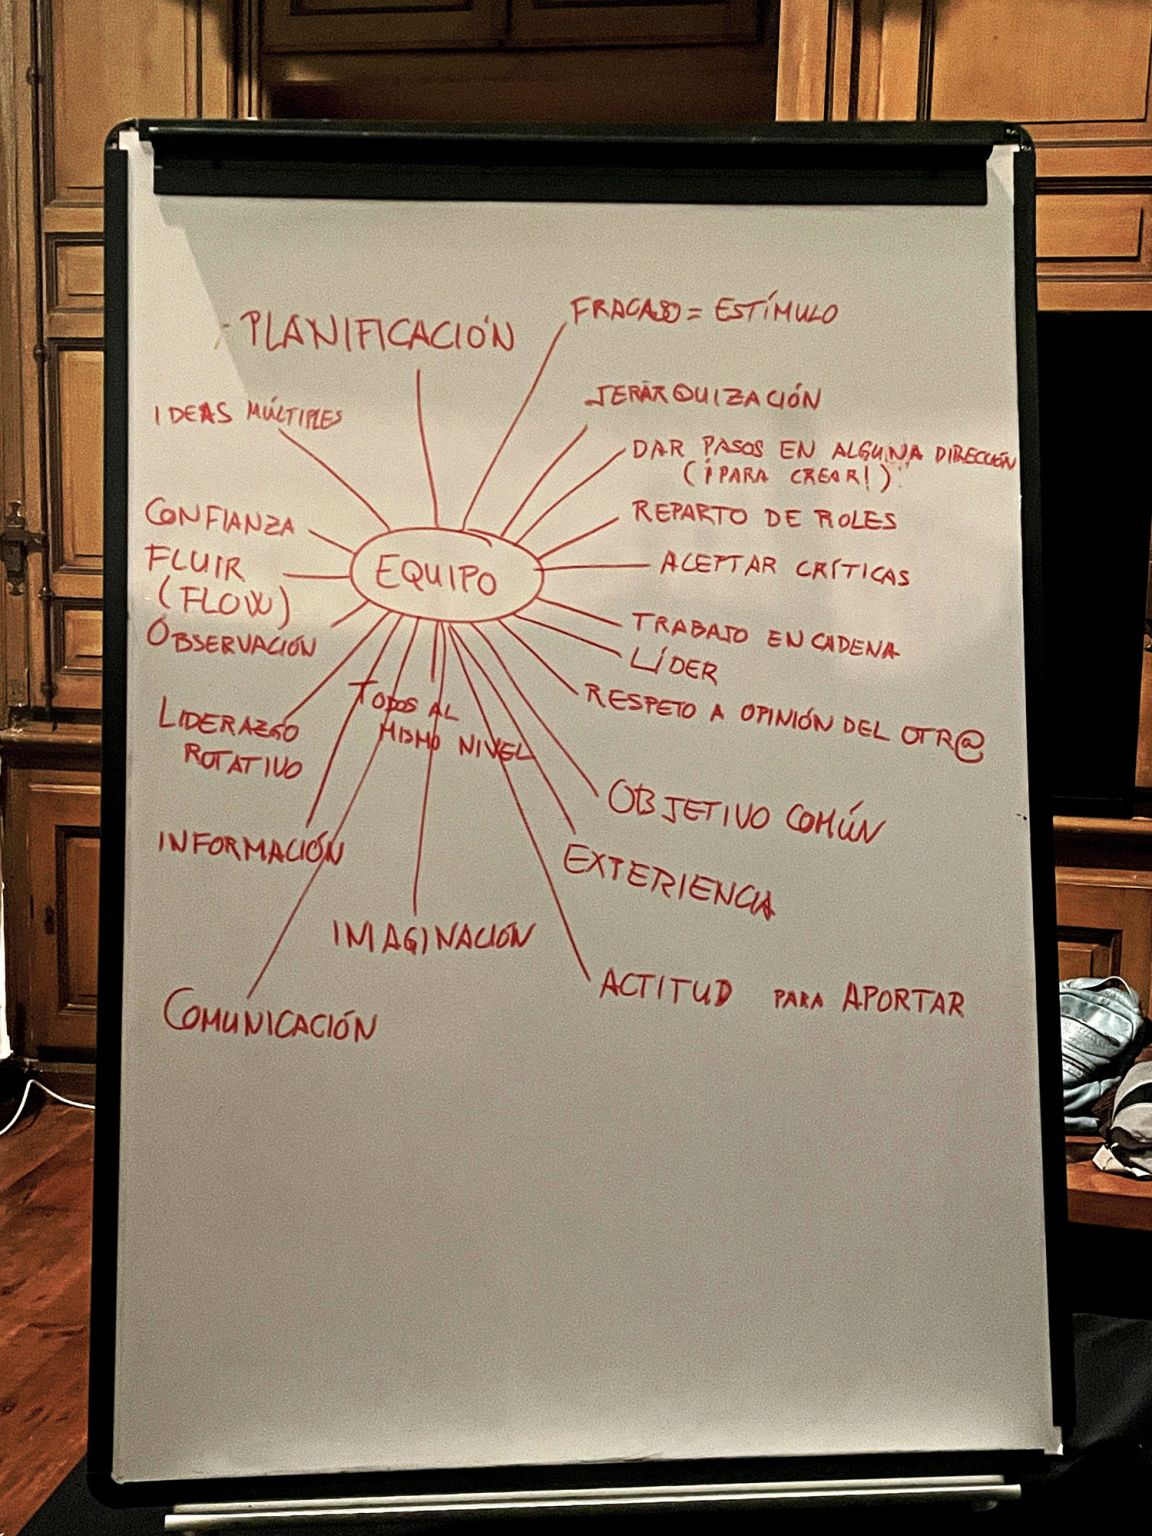 PLANIFICACIÓN
FRACASO = ESTÍMULO
IDEAS MÚLTIPLES
JERARQUIZACIÓN
DAR PASOS EN ALGUNA DIRECCIÓN
(¡PARA CREAR!)
CONFIANZA
REPARTO DE ROLES
FLUIR
(FLOW)
EQUIPO
ACEPTAR CRÍTICAS
OBSERVACIÓN
TRABAJO EN CADENA
LÍDER
LIDERAZGO
ROTATIVO
TODOS AL
MISMO NIVEL
RESPETO A OPINIÓN DEL OTR@
OBJETIVO COMÚN
INFORMACIÓN
EXPERIENCIA
IMAGINACIÓN
ACTITUD PARA APORTAR
COMUNICACIÓN